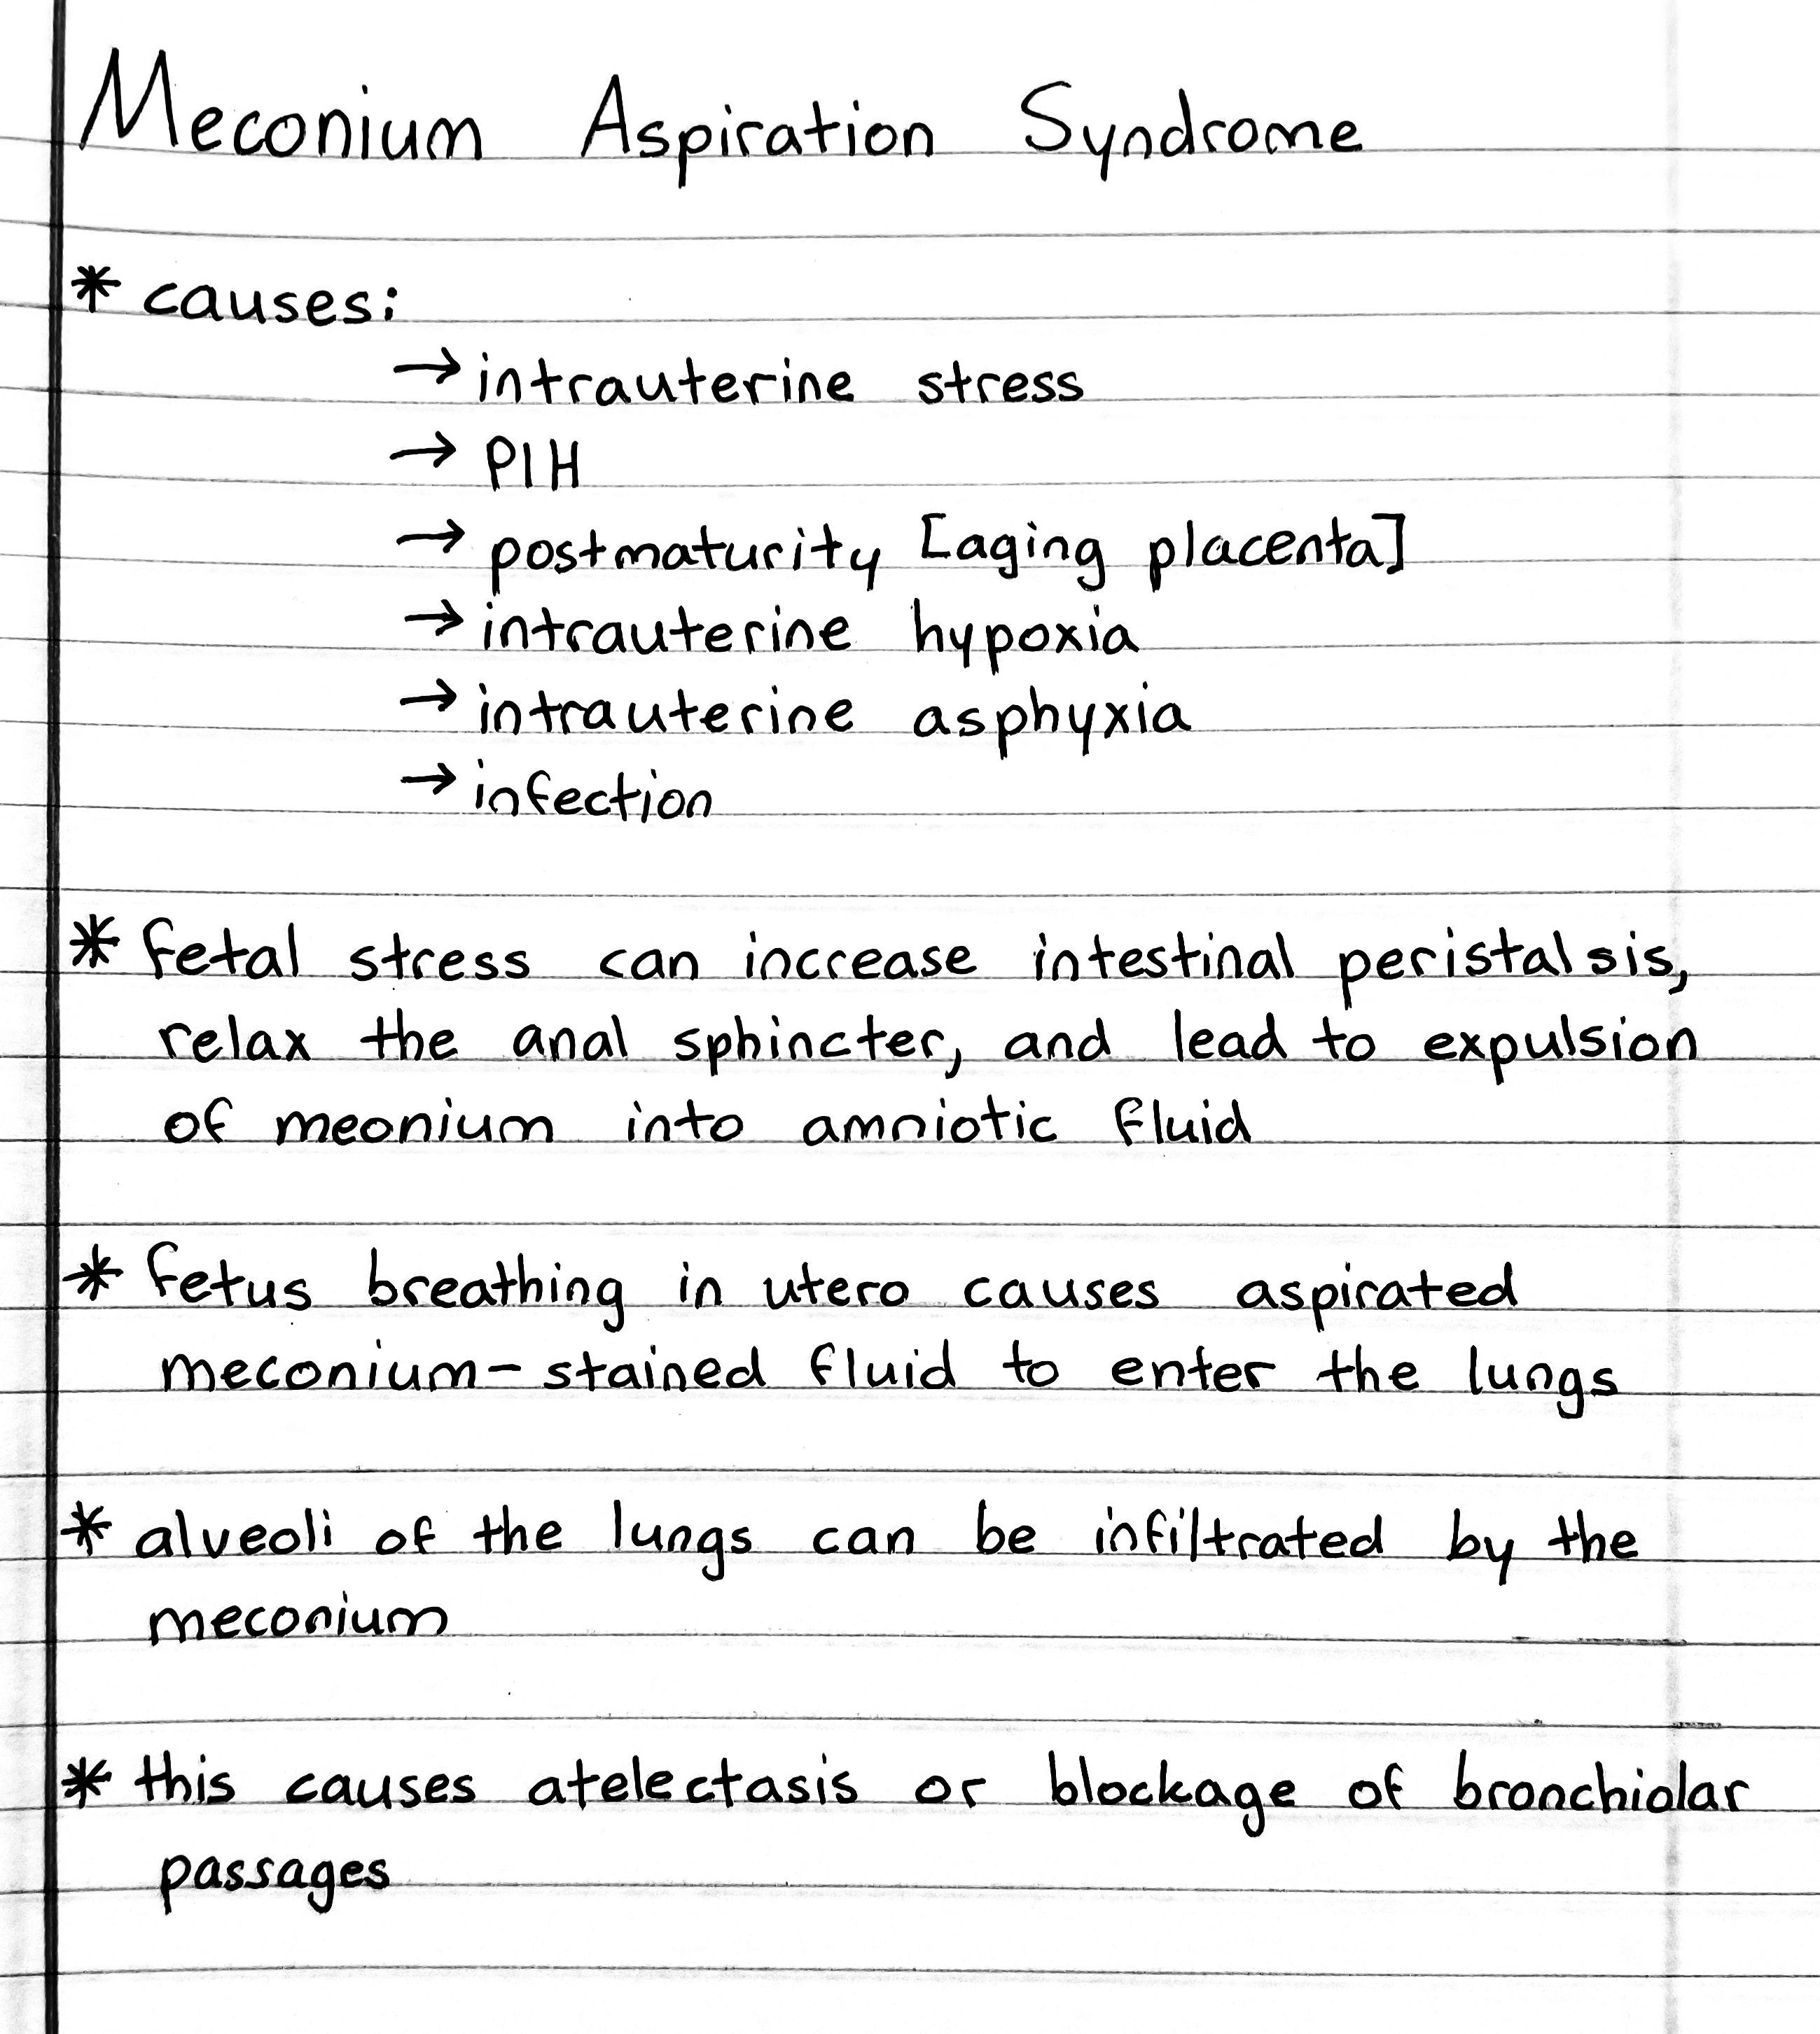 Meconium Aspiration Syndrome
* causes:
→ intrauterine stress
→ PIH
→ postmaturity [aging placenta]
→ intrauterine hypoxia
→ intrauterine asphyxia
→ infection
* fetal stress can increase intestinal peristalsis,
relax the anal sphincter, and lead to expulsion
of meonium into amniotic fluid
* fetus breathing in utero causes aspirated
meconium-stained fluid to enter the lungs
* alveoli of the lungs can be infiltrated by the
meconium
* this causes atelectasis or blockage of bronchiolar
passages